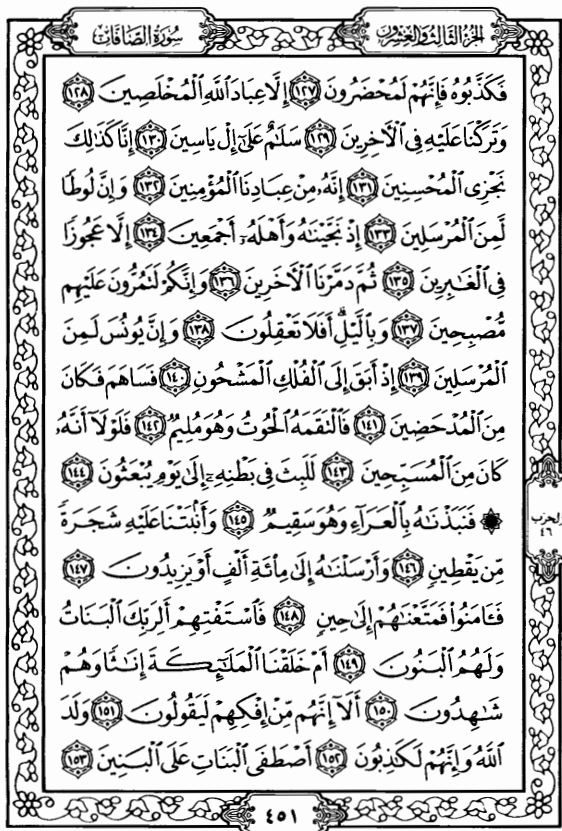 سُورَةُ الصَّافَّاتِ الجُزْءُ الثَّالِثُ وَالعِشْرُونَ
فَكَذَّبُوهُ فَإِنَّهُمْ لَمُحْضَرُونَ ١٢٧ إِلَّا عِبَادَ ٱللَّهِ ٱلْمُخْلَصِينَ ١٢٨
وَتَرَكْنَا عَلَيْهِ فِى ٱلْءَاخِرِينَ ١٢٩ سَلَٰمٌ عَلَىٰٓ إِلْ يَاسِينَ ١٣٠ إِنَّا كَذَٰلِكَ
نَجْزِى ٱلْمُحْسِنِينَ ١٣١ إِنَّهُۥ مِنْ عِبَادِنَا ٱلْمُؤْمِنِينَ ١٣٢ وَإِنَّ لُوطًا
لَّمِنَ ٱلْمُرْسَلِينَ ١٣٣ إِذْ نَجَّيْنَٰهُ وَأَهْلَهُۥٓ أَجْمَعِينَ ١٣٤ إِلَّا عَجُوزًا
فِى ٱلْغَٰبِرِينَ ١٣٥ ثُمَّ دَمَّرْنَا ٱلْءَاخَرِينَ ١٣٦ وَإِنَّكُمْ لَتَمُرُّونَ عَلَيْهِم
مُّصْبِحِينَ ١٣٧ وَبِٱلَّيْلِۗ أَفَلَا تَعْقِلُونَ ١٣٨ وَإِنَّ يُونُسَ لَمِنَ
ٱلْمُرْسَلِينَ ١٣٩ إِذْ أَبَقَ إِلَى ٱلْفُلْكِ ٱلْمَشْحُونِ ١٤٠ فَسَاهَمَ فَكَانَ
مِنَ ٱلْمُدْحَضِينَ ١٤١ فَٱلْتَقَمَهُ ٱلْحُوتُ وَهُوَ مُلِيمٌ ١٤٢ فَلَوْلَآ أَنَّهُۥ
كَانَ مِنَ ٱلْمُسَبِّحِينَ ١٤٣ لَلَبِثَ فِى بَطْنِهِۦٓ إِلَىٰ يَوْمِ يُبْعَثُونَ ١٤٤
۞ فَنَبَذْنَٰهُ بِٱلْعَرَآءِ وَهُوَ سَقِيمٌ ١٤٥ وَأَنۢبَتْنَا عَلَيْهِ شَجَرَةً
مِّن يَقْطِينٍ ١٤٦ وَأَرْسَلْنَٰهُ إِلَىٰ مِا۟ئَةِ أَلْفٍ أَوْ يَزِيدُونَ ١٤٧
فَـَٔامَنُوا۟ فَمَتَّعْنَٰهُمْ إِلَىٰ حِينٍ ١٤٨ فَٱسْتَفْتِهِمْ أَلِرَبِّكَ ٱلْبَنَاتُ
وَلَهُمُ ٱلْبَنُونَ ١٤٩ أَمْ خَلَقْنَا ٱلْمَلَٰٓئِكَةَ إِنَٰثًا وَهُمْ
شَٰهِدُونَ ١٥٠ أَلَآ إِنَّهُم مِّنْ إِفْكِهِمْ لَيَقُولُونَ ١٥١ وَلَدَ
ٱللَّهُ وَإِنَّهُمْ لَكَٰذِبُونَ ١٥٢ أَصْطَفَى ٱلْبَنَاتِ عَلَى ٱلْبَنِينَ ١٥٣
الحزب
٤٦
٤٥١